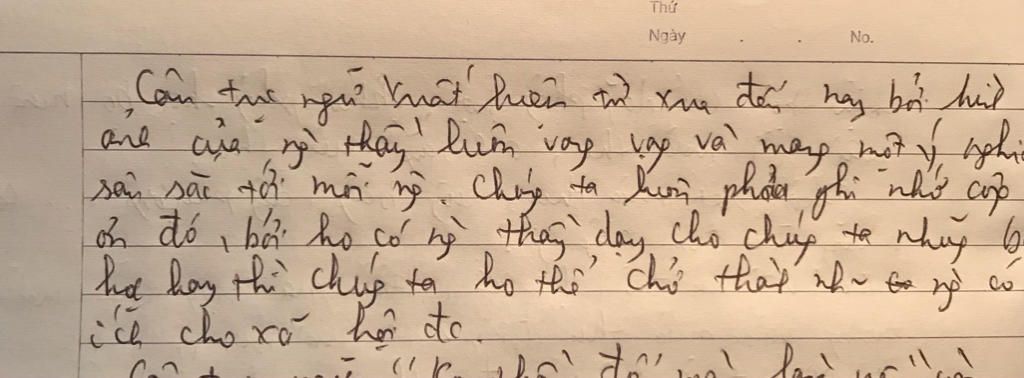 Thứ
Ngày . . No.
Câu tục ngữ xuất hiện từ xưa đến nay bởi hìn
ảnh của ng` thầy luôn vang vọng và mang một ý nghĩ
sâu sắc tới mỗi ng`. Chúng ta luôn phải ghi nhớ công
ơn đó, bởi ko có ng` thầy dạy cho chúng ta những b
học hay thì chúng ta ko thể thành ng` có
ích cho xã hội đc.